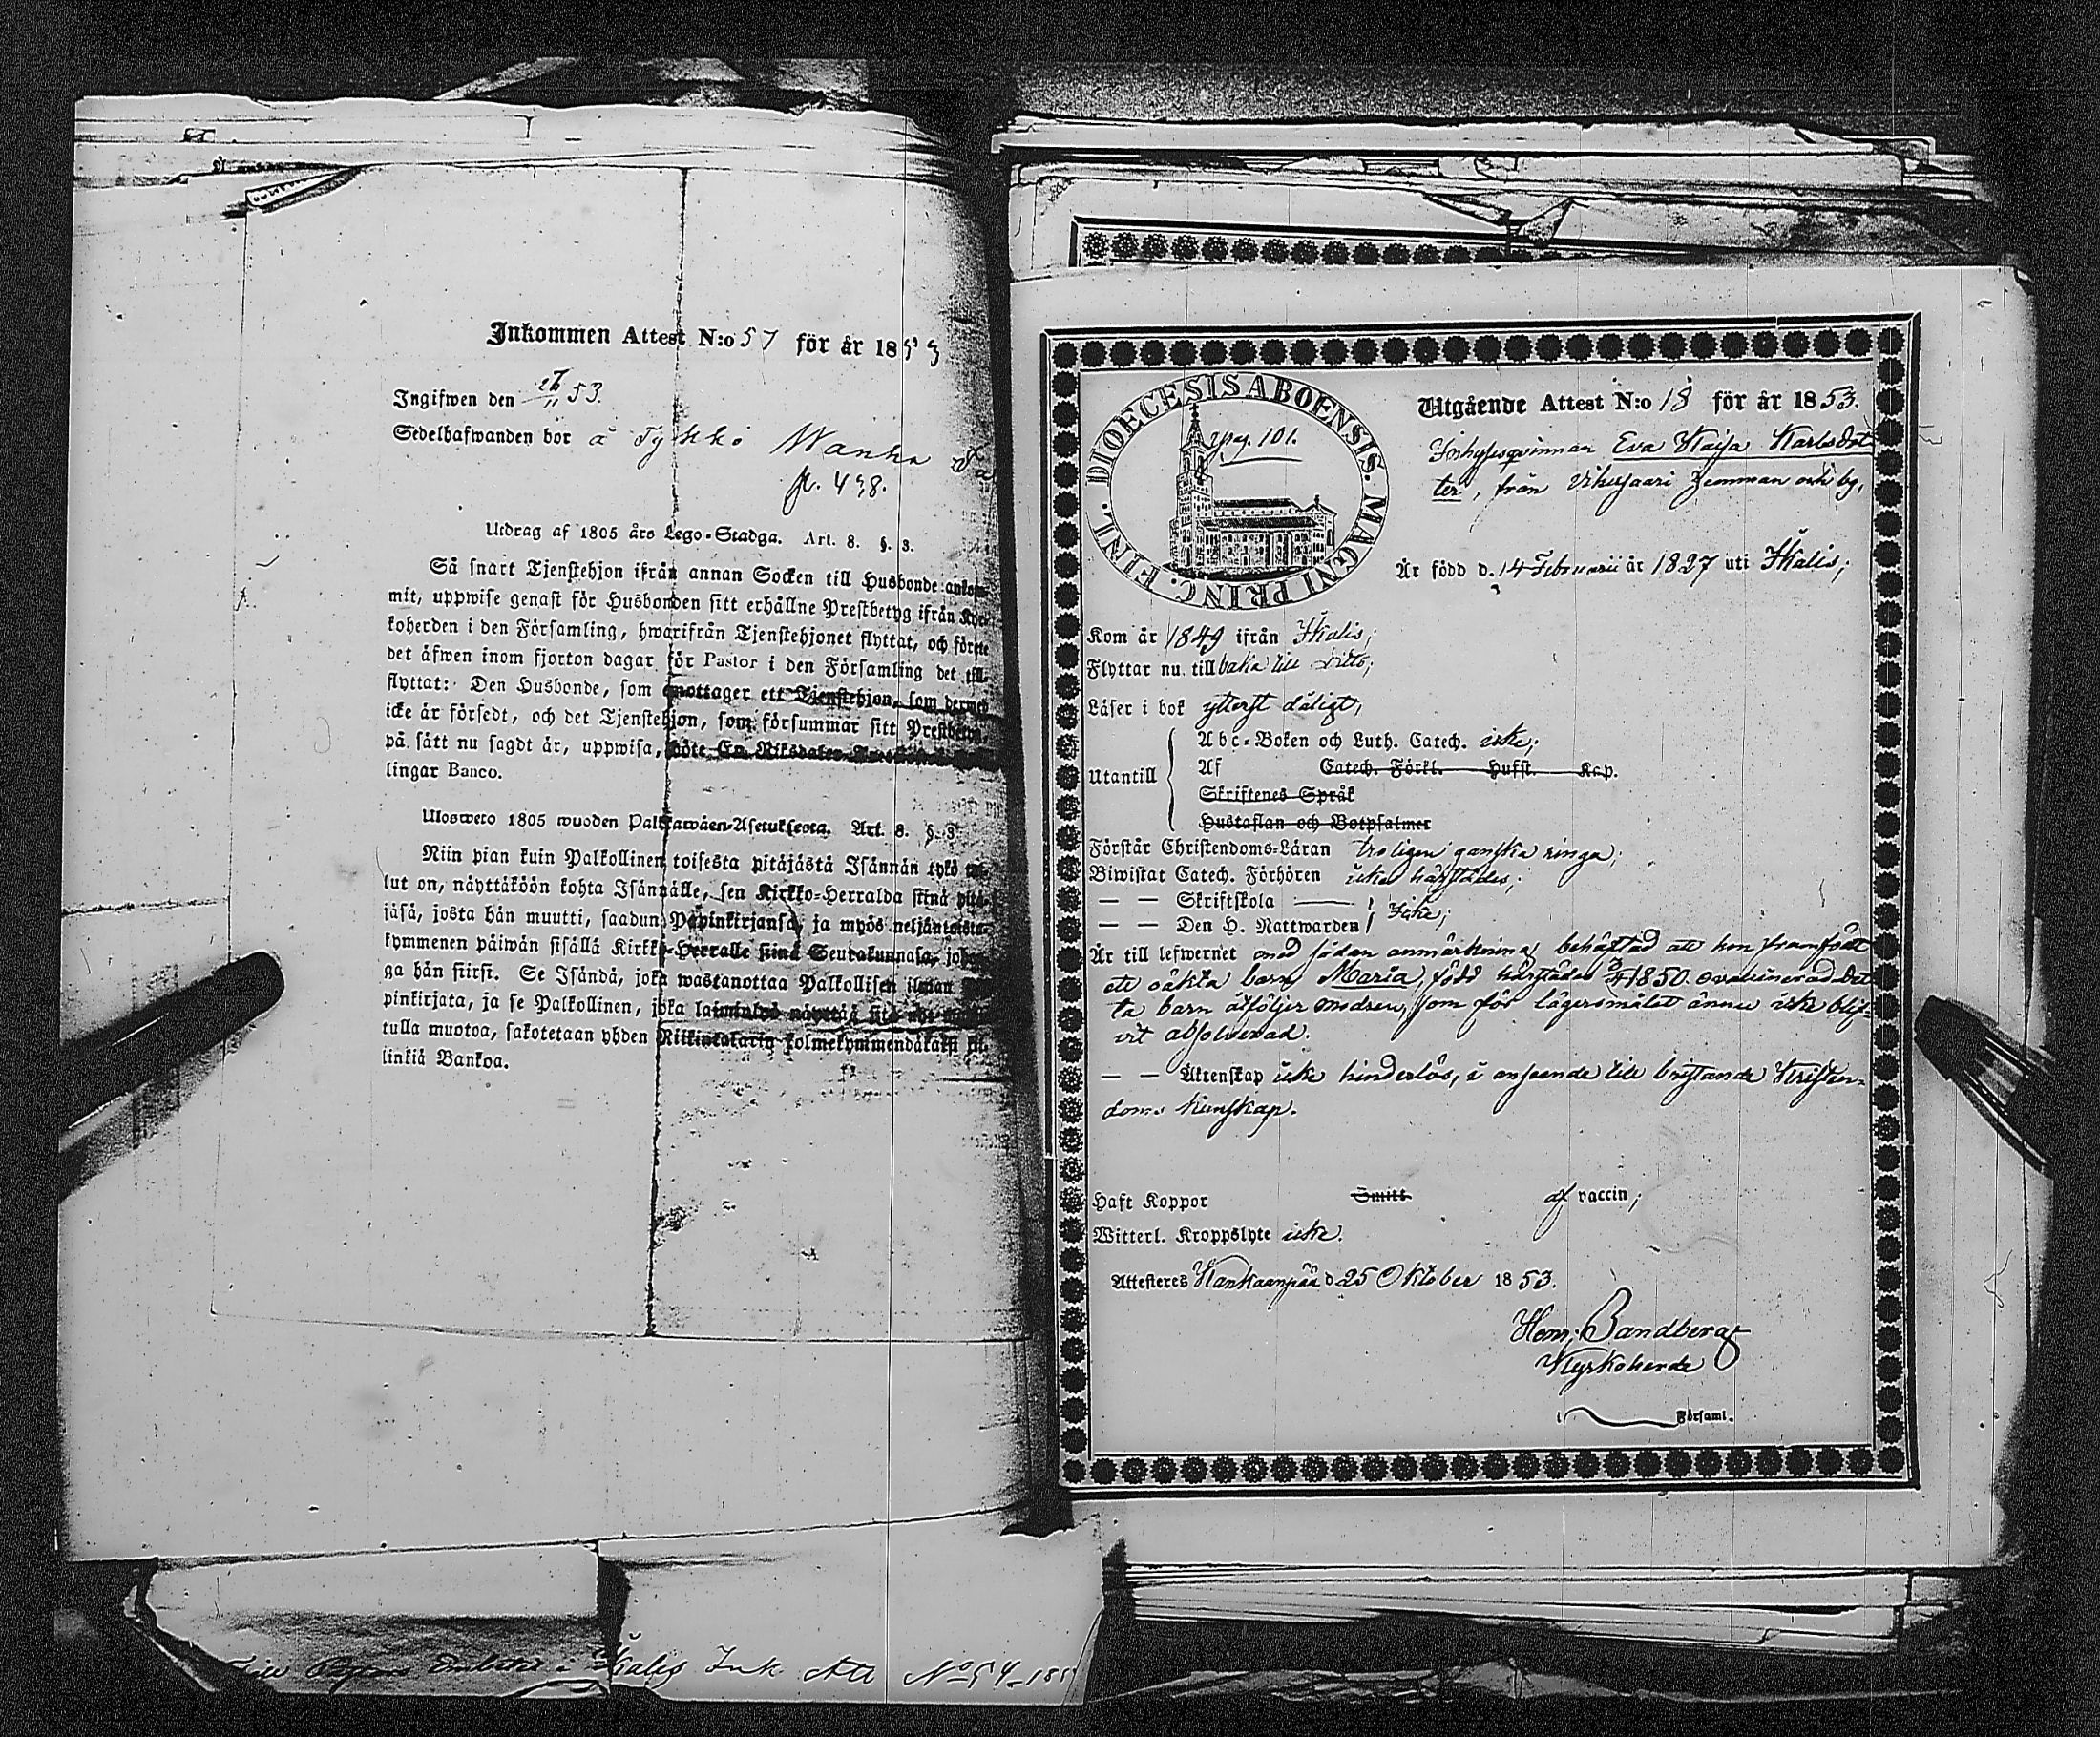 Inkommen Attest N:o 57 för år 1853
Ingifwen den 53.
Sedelhafwanden bor å Tykkö Wanha
p. 438.
Utdrag af 1805 års Lego-Stadga. Art. 8. §. 3.
Så snart Tjenstehjon ifrån annan Socken till Husbonde ankom-
mit, uppwise genast för Husbonden sitt erhållne Prestbetyg ifrån Kyr-
koherden i den Församling, hwarifrån Tjenstehjonet flyttat, och förete
det äfwen inom fjorton dagar för Pastor i den Församling det till-
flyttat: Den Husbonde, som emottager ett Tjenstehjon, som dermed
icke är försedt, och det Tjenstehjon, som försummar sitt Prestbetyg,
på sätt nu sagdt är, uppwisa, böte En Riksdaler
lingar Banco.
Ulosweto 1805 wuoden Palkkawäen-Asetuksesta. Art. 8. §. 3.
Niin pian kuin Palkollinen toisesta pitäjästä Isännän tykö tul-
lut on, näyttäköön kohta Isännälle, sen Kirkko-Herralda siinä pitä-
jäsä, josta hän muutti, saadun Päpinkirjansa, ja myös neljäntoista-
kymmenen päiwän sisällä Kirkko-Herralle siinä Seurakunnasa, johon-
ga hän siirsi. Se Isändä, joka wastanottaa Palkollisen ilman
pinkirjata, ja se Palkollinen, joka laiminlyö näyttää sitä
tulla muotoa, sakotetaan yhden Riikintalarin kolmekymmendäkaksi kil-
linkiä Bankoa.
Till Pastors Embetet i Ikalis Ink. Att No 54 185
DIOECESIS ABOENSIS. MAGNI PRINC. FINL.
pag. 101.
Utgående Attest N:o 18 för år 1853.
Inhysesqvinnan Eva Kaija Karlsdot
ter, från Vihusaari hemman och by,
Är född d. 14 Februarii år 1827 uti Ikalis;
Kom år 1849 ifrån Ikalis;
Flyttar nu till baka till ditto;
Läser i bok ytterst dåligt,
Utantill
Abc-Boken och Luth. Catech. icke;
Af Catech. Förkl. Husft. Kap.
Skriftenes Språk
Hustaflan och Botpsalmer
Förstår Christendoms-Läran troligen ganska ringa;
Biwistat Catech. Förhören icke härstädes;
— — Skriftskola
— — Den H. Nattwarden Icke;
Är till lefwernet med sådan anmärkning behäftad att hon framfödt
ett oäkta barn Maria, född härstädes 1850. ovaccinerad. Det
ta barn åtföljer modren, som för lägersmålet ännu icke blif-
vit absolverad.
— — Äktenskap icke hinderlös, i anseende till bristande Kristen-
doms kunskap.
Haft Koppor Smitt af vaccin;
Witterl. Kroppslyte icke.
Attesteres Kankaanpää d 25 Oktober 1853.
Henr. Bandberg
Kyrkoherde
i Församl.